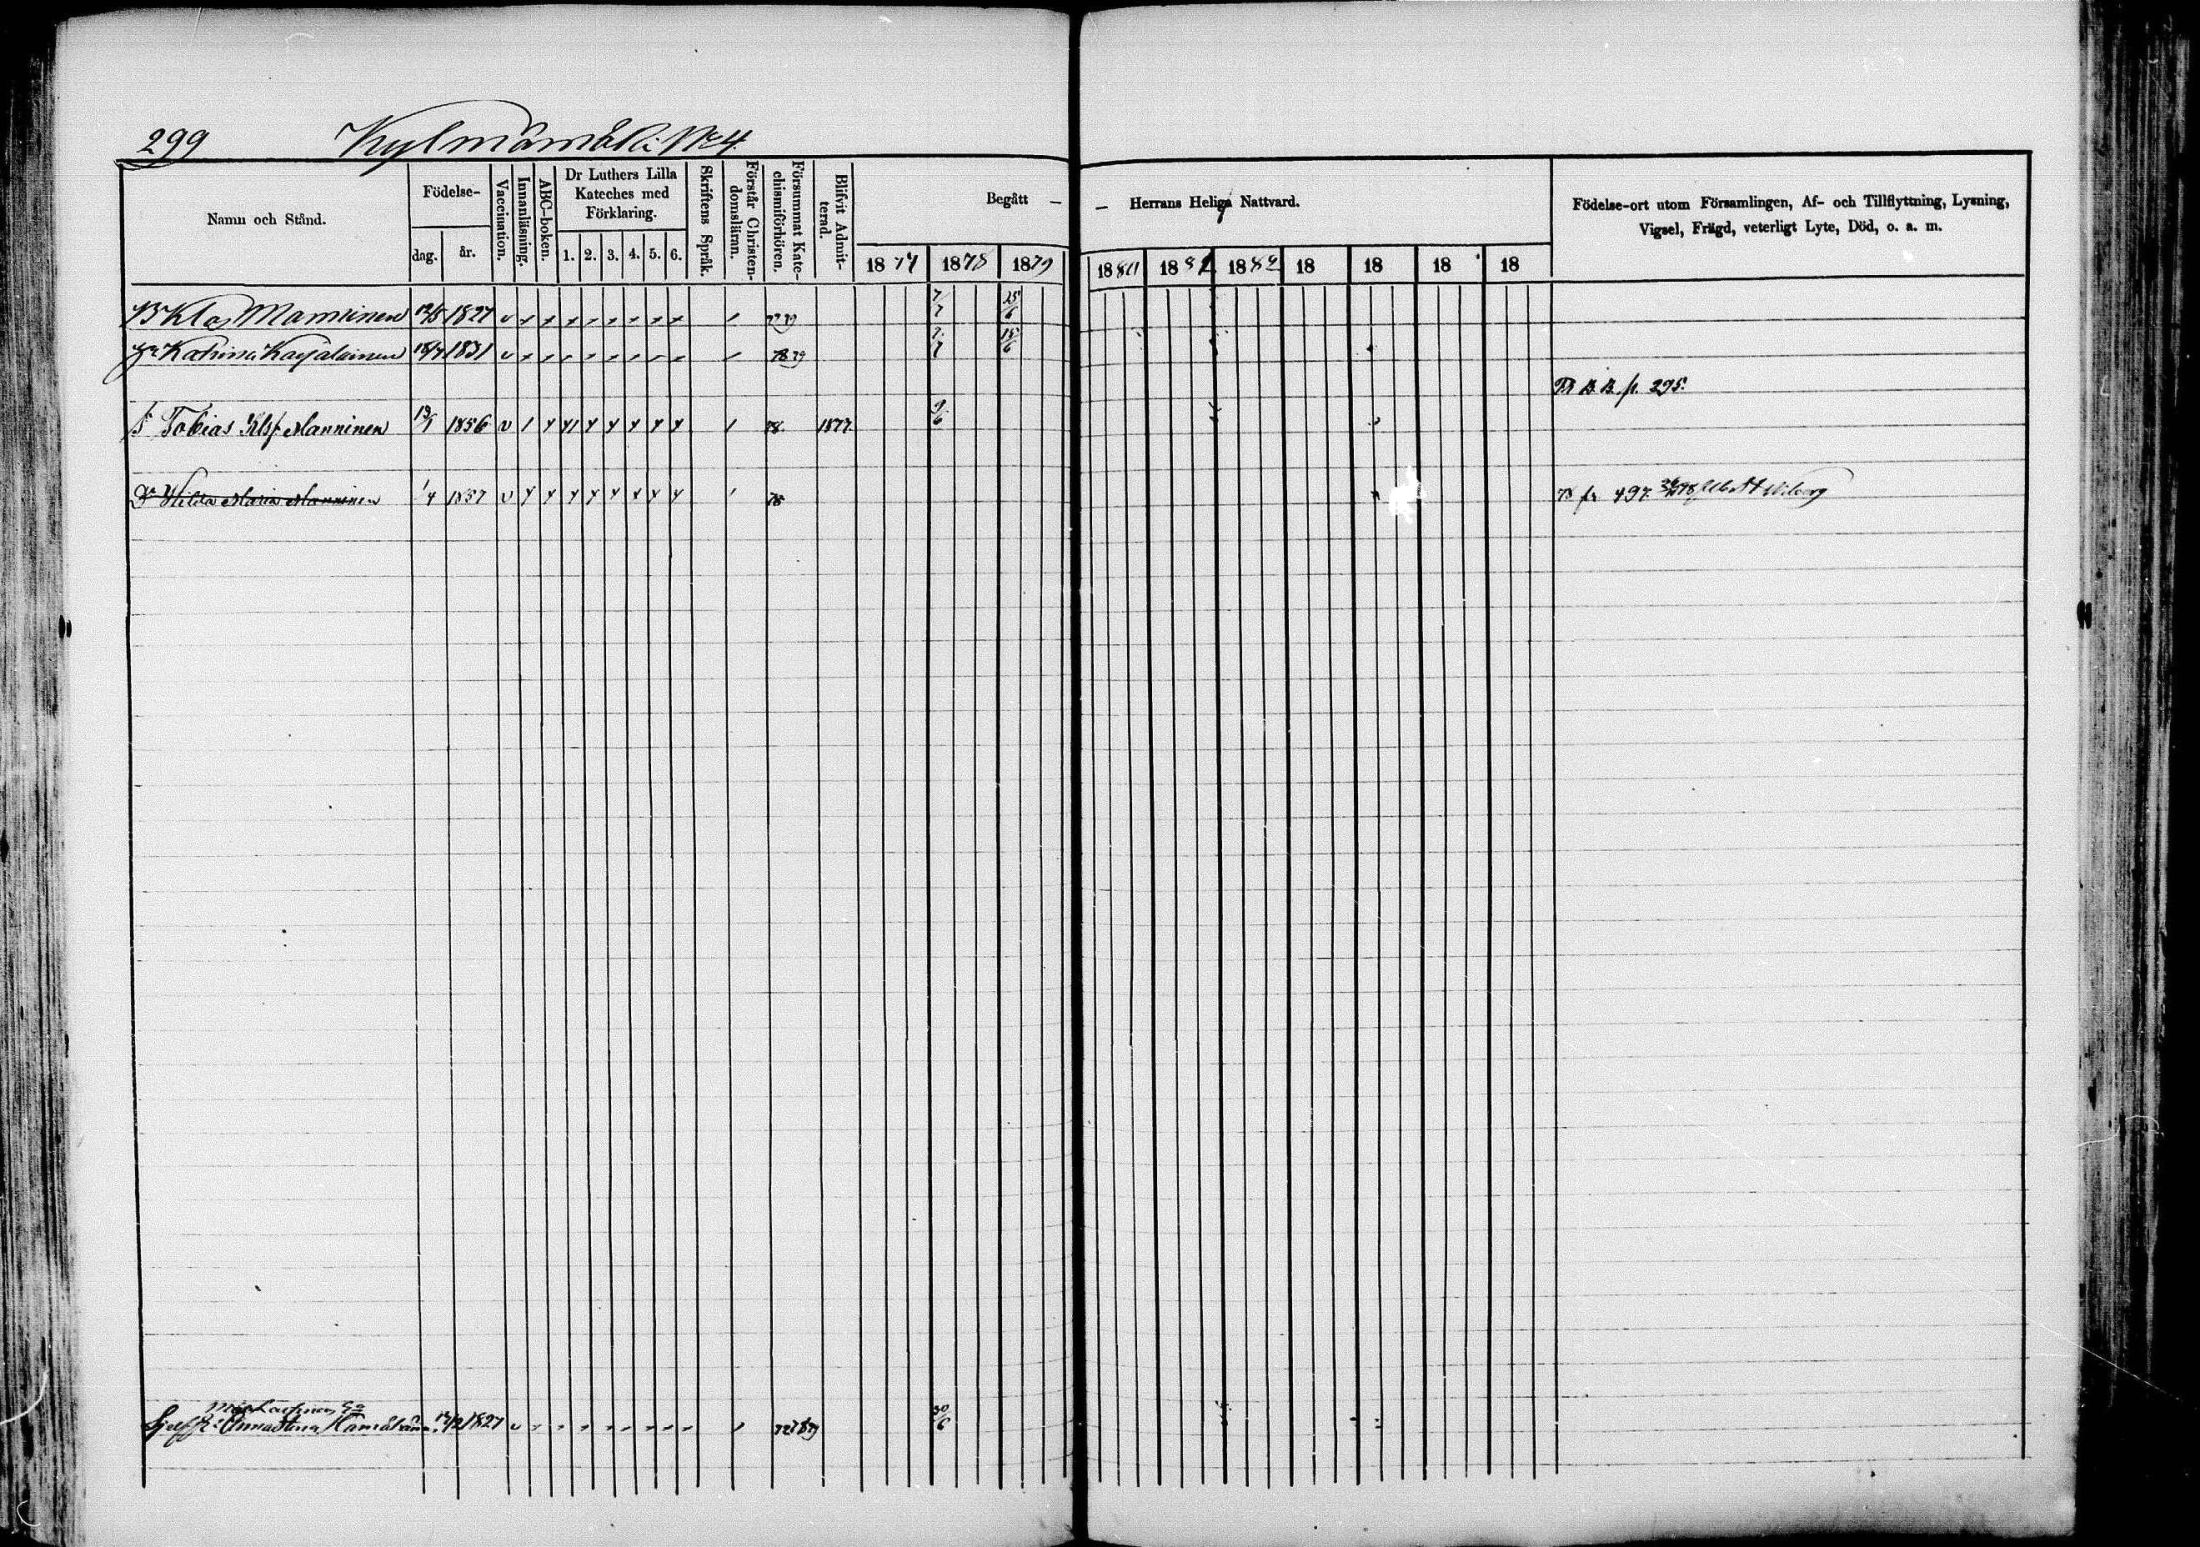 299 Kylmämäki No 4
Namn och Stånd.
Födelse-
dag. år.
Vaccination.
Innanläsning.
ABC-boken.
Dr Luthers Lilla Kateches med Förklaring.
1. 2. 3. 4. 5. 6.
Skriftens Språk.
Förstår Christen-domsläran.
Försummat Kate-chismiförhören.
Blifvit Admit-terad.
Begått — — Herrans Heliga Nattvard.
1877 1878 1879 1880 1881 1882 18 18 18 18
Födelse-ort utom Församlingen, Af- och Tillflyttning, Lysning,
Vigsel, Frägd, veterligt Lyte, Död, o. a. m.
B Klas Manninen 1827 v 7/7 25/6
Katrina Karjalainen 1831 v 78 79 7/7 15/6
p. 295.
Tobias Manninen 1856 v 78 1877 9/6
Dr Hilda Maria Manninen 1/4 1857 v 78 497 Wiborg
Anna Stina 1827 v 30/6